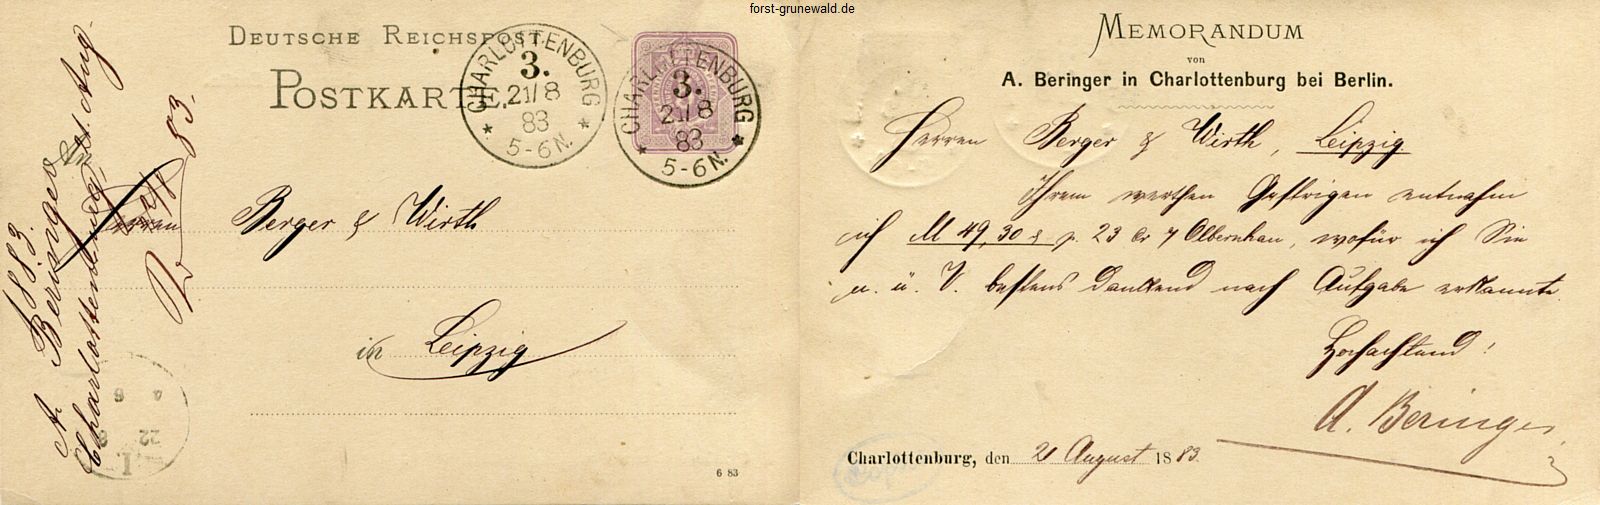 forst-grunewald.de
DEUTSCHE REICHSPOST.
POSTKARTE.
CHARLOTTENBURG
3.
21/8
83
5-6N.
CHARLOTTENBURG
3.
21/8
83
5-6N.
An
Herren Berger & Wirth
in Leipzig
6 83
1883.
A. Beringer
Charlottenburg, 21. Aug.
22/8 83.
MEMORANDUM
von
A. Beringer in Charlottenburg bei Berlin.
Herren Berger & Wirth, Leipzig.
Ihrem werthen Gestrigen entnahm
ich M 49,30 p. 23 Olbernhau, wofür ich Sie
u. ü. V. bestens dankend nach Aufgabe erkannte.
Hochachtend!
A. Beringer
Charlottenburg, den 21 August 1883.